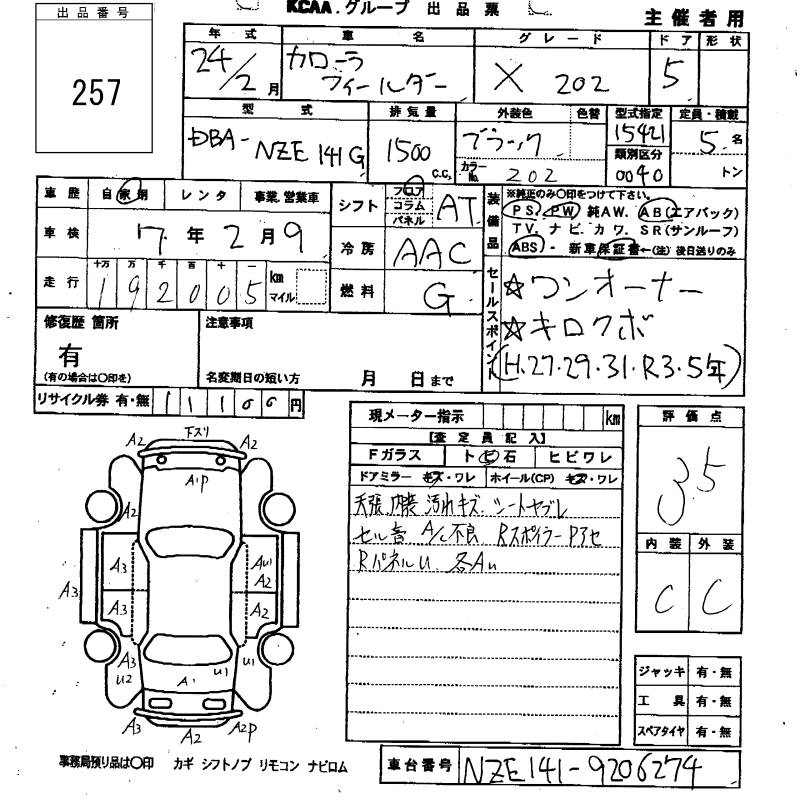 出品番号
257
KCAA.グループ 出品票
主催者用
年式 車名 グレード ドア 形状
24/2月 カローラフィールダー X 202 5
型式 排気量 外装色 色替 型式指定 定員・積載
DBA-NZE141G 1500c.c. ブラック 15421 5名
カラーNo. 202 類別区分 0040 トン
車歴 自家用 レンタ 事業.営業車
車検 7年2月9
走行 十万 万 千 百 十 一 192005 km マイル
シフト フロア コラム パネル AT
冷房 AAC
燃料 G
装備品
※純正のみ○印をつけて下さい。
PS. PW 純AW. AB(エアバック)
TV. ナビ. カワ. SR(サンルーフ)
ABS・ 新車保証書←(注)後日送りのみ
セールスポイント
☆ワンオーナー
☆キロクボ
(H.27.29.31.R3.5年)
修復歴 箇所
有
(有の場合は○印を)
注意事項
名変期日の短い方 月 日まで
リサイクル券 有・無 11100円
現メーター指示 km
【査定員記入】
Fガラス ト ビ 石 ヒビワレ
ドアミラー キズ・ワレ ホイール(CP) キズ・ワレ
天張.内装 汚れキズ.シートヤブレ
セル音 A/C不良 RスポイラーPアセ
RパネルU 各AU
評価点
3.5
内装 外装
C C
A2 下スリ A2
A1P
A2
A3 A3 AU1 A2
A3 A2
A3 U2 A1 U1 U1
A3 A2 A2P
ジャッキ 有・無
工具 有・無
スペアタイヤ 有・無
事務局預り品は○印 カギ シフトノブ リモコン ナビロム
車台番号 NZE141-9206274